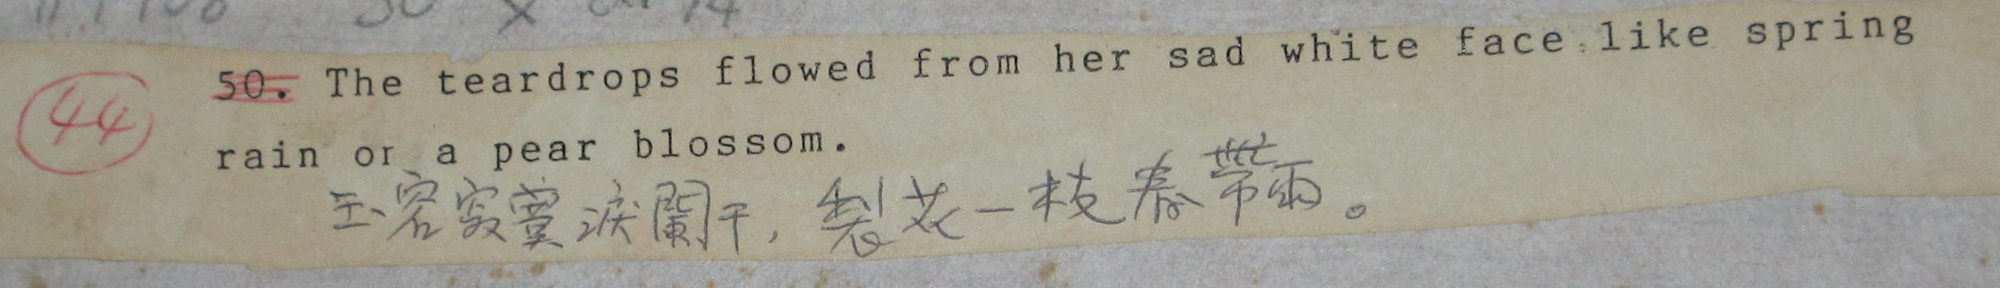 44 50. The teardrops flowed from her sad white face like spring
rain or a pear blossom.
玉容寂寞淚闌干,梨花一枝春帶雨。